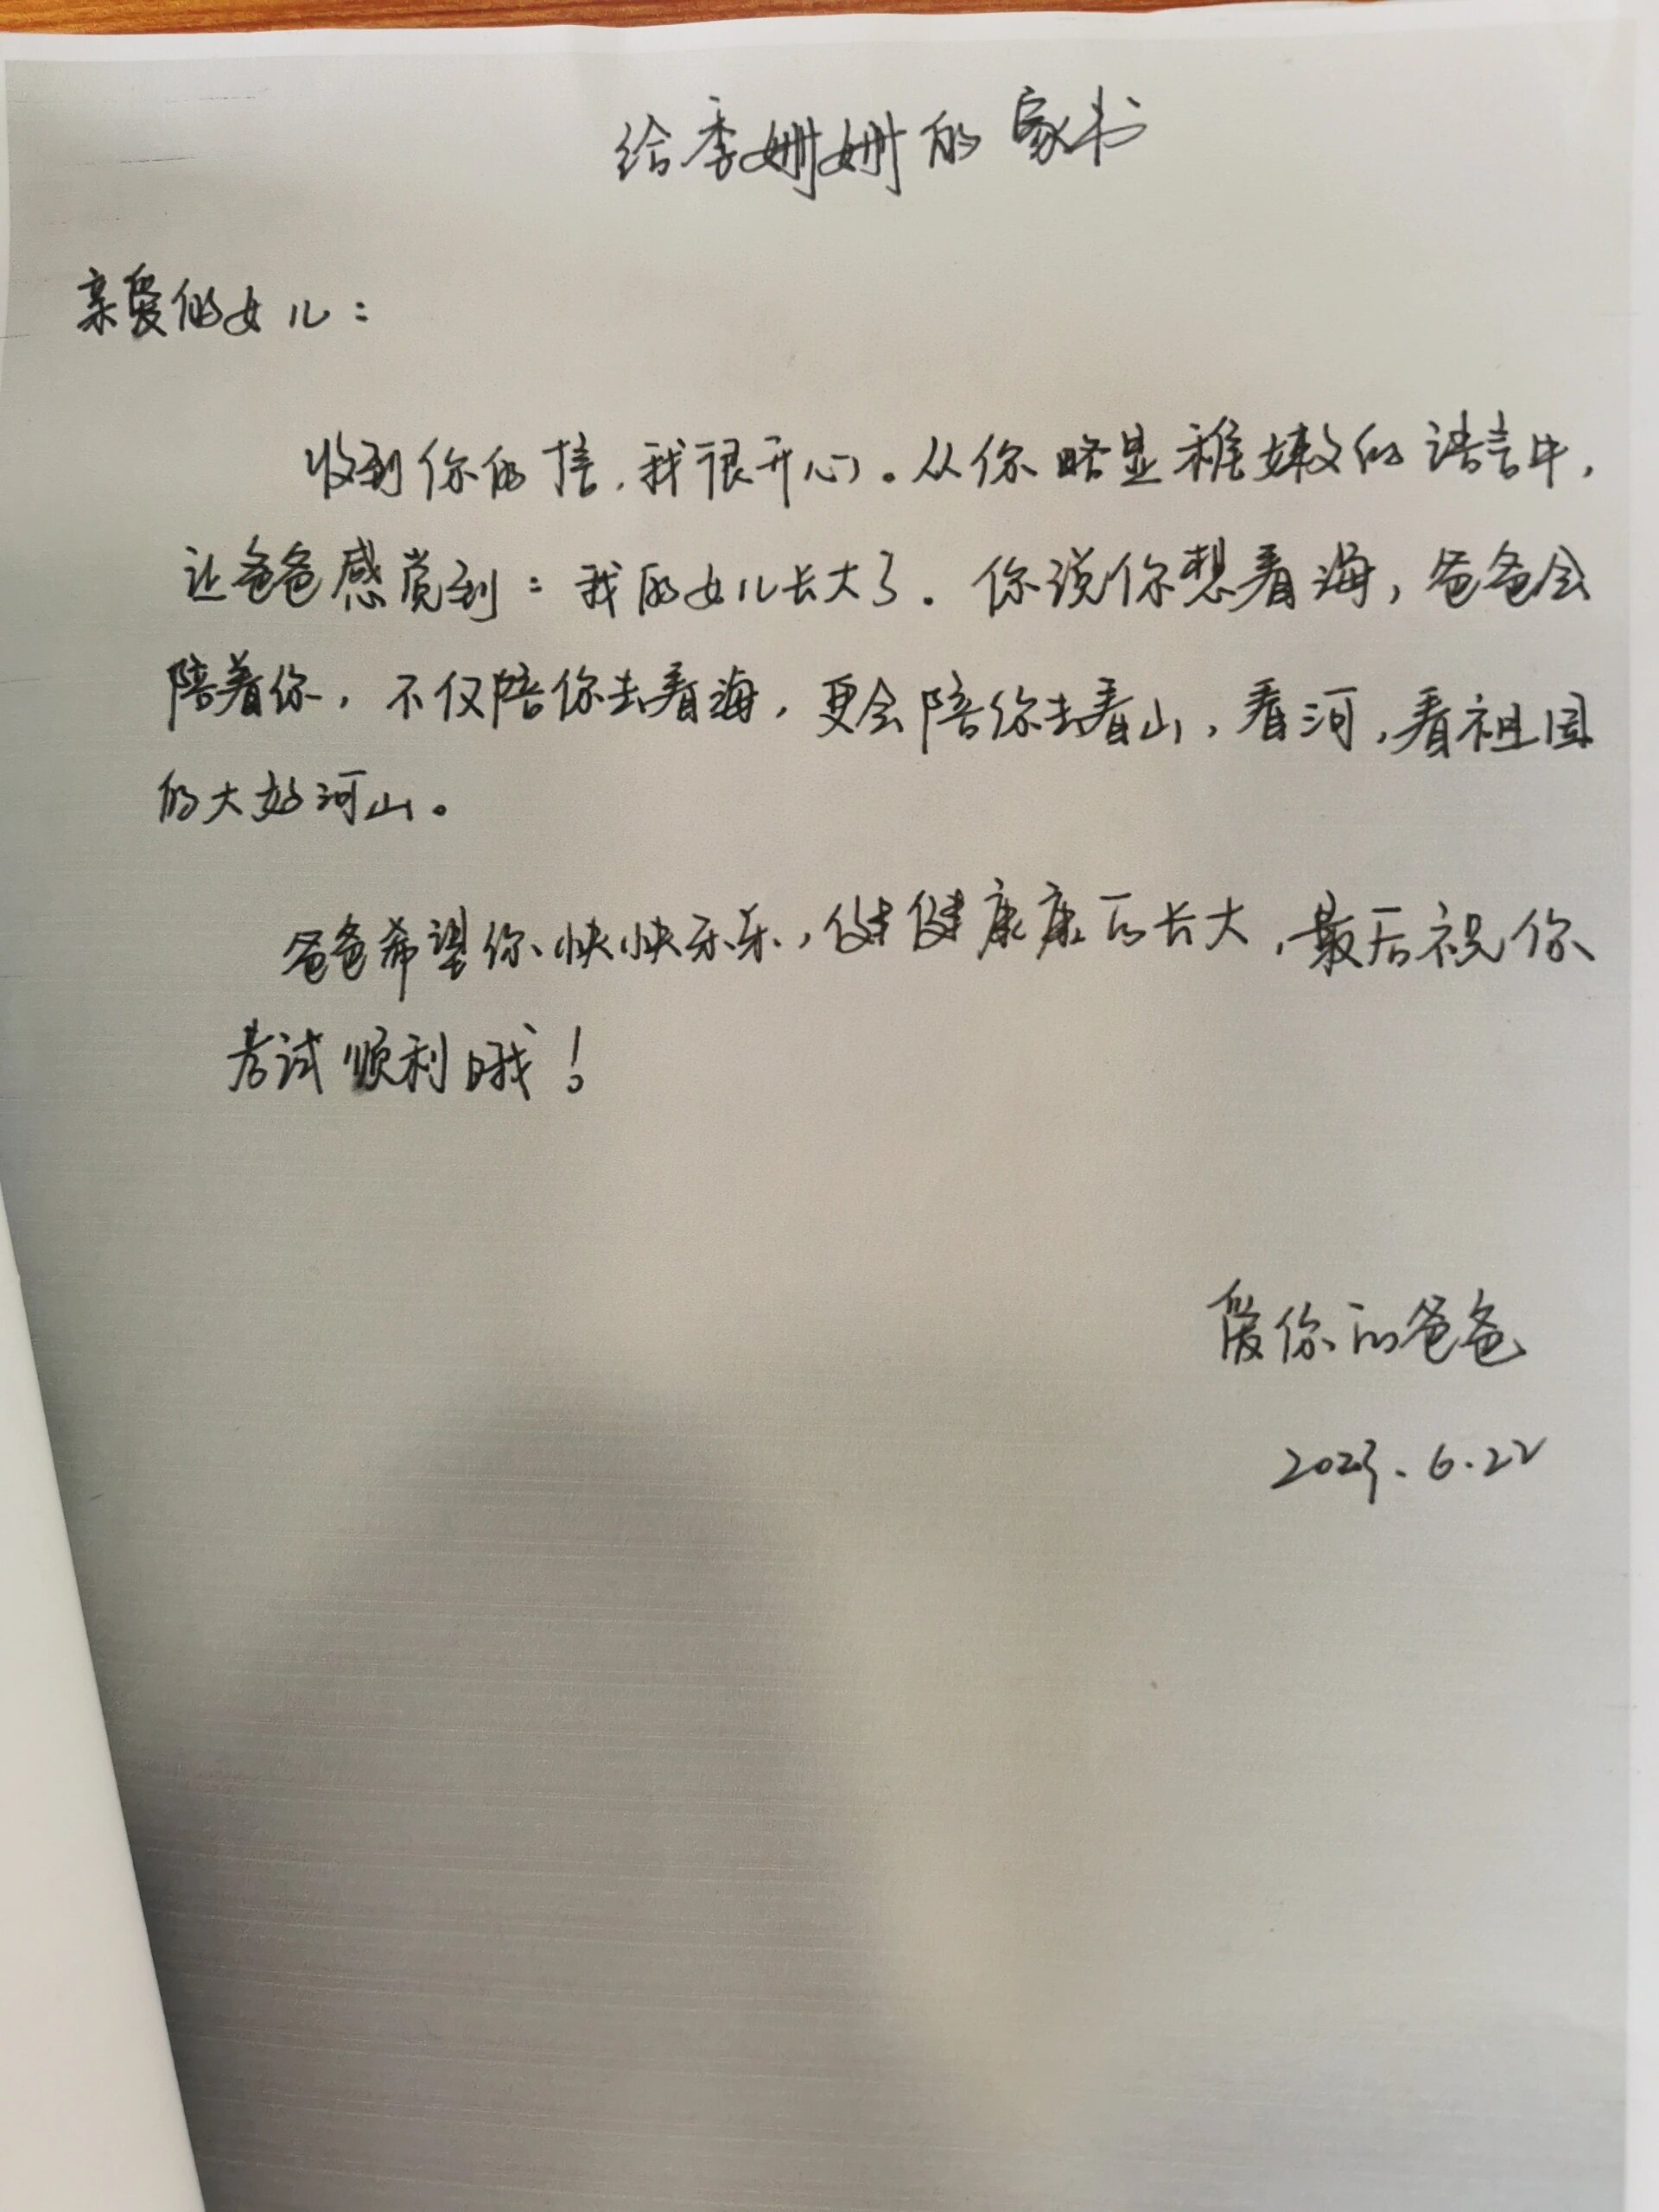 给李姗姗的家书
亲爱的女儿：
收到你的信，我很开心。从你略显稚嫩的语言中，
让爸爸感觉到：我的女儿长大了．你说你想看海，爸爸会
陪着你，不仅陪你去看海，更会陪你去看山，看河，看祖国
的大好河山。
爸爸希望你快快乐乐，健健康康的长大，最后祝你
考试顺利哦！
爱你的爸爸
2023.6.22